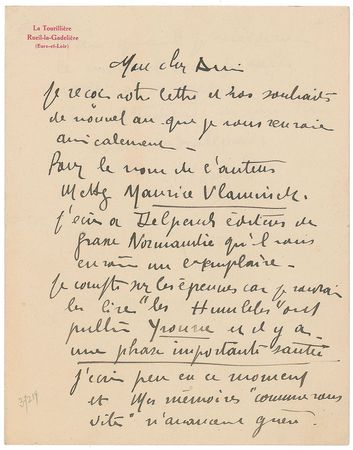 La Tourillière
Rueil-la-Gadelière
(Eure-et-Loir)
Mon cher Ami
je reçois votre lettre et vos souhaits
de nouvel an que je vous renvoie
amicalement —
Pour le nom de l'auteur
Mettez Maurice Vlaminck.
j'écris a Delpeuch éditeur de
grave Normandie qu'il vous
envoie un exemplaire —
je compte sur les épreuves car je voudrais
les lire "les Humbles" ont
publié Yvonne et il y a
une phrase importante sautée
j'écris peu en ce moment
et Mes mémoires "comme vous
dites" n'avancent guère.